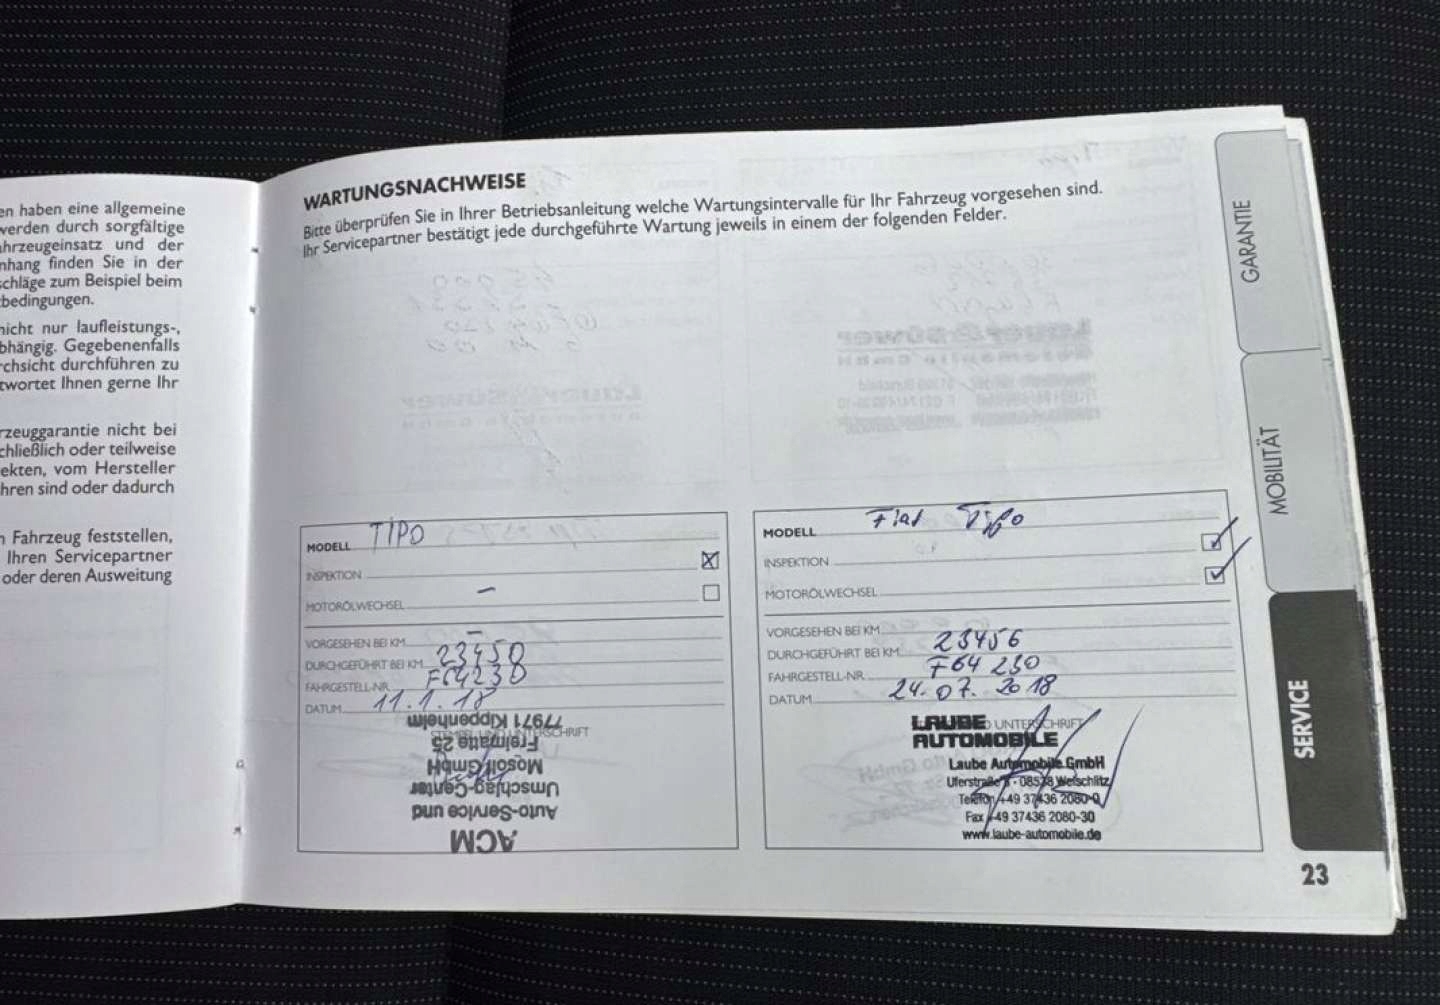 en haben eine allgemeine
werden durch sorgfältige
ahrzeugeinsatz und der
nhang finden Sie in der
schläge zum Beispiel beim
bedingungen.
nicht nur laufleistungs-,
bhängig. Gegebenenfalls
rchsicht durchführen zu
twortet Ihnen gerne Ihr
rzeuggarantie nicht bei
chließlich oder teilweise
ekten, vom Hersteller
hren sind oder dadurch
n Fahrzeug feststellen,
Ihren Servicepartner
oder deren Ausweitung
WARTUNGSNACHWEISE
Bitte überprüfen Sie in Ihrer Betriebsanleitung welche Wartungsintervalle für Ihr Fahrzeug vorgesehen sind.
Ihr Servicepartner bestätigt jede durchgeführte Wartung jeweils in einem der folgenden Felder.
MODELL TIPO
INSPEKTION X
MOTORÖLWECHSEL –
VORGESEHEN BEI KM –
DURCHGEFÜHRT BEI KM 23450
FAHRGESTELL-NR. F64230
DATUM 11.1.18
STEMPEL UND UNTERSCHRIFT
ACM
Auto-Service und
Umschlag-Center
Mosolf GmbH
Freimatte 25
77971 Kippenheim
MODELL Fiat Tipo
INSPEKTION ✓
MOTORÖLWECHSEL ✓
VORGESEHEN BEI KM
DURCHGEFÜHRT BEI KM 23456
FAHRGESTELL-NR. F64 230
DATUM 24.07.2018
UNTERSCHRIFT
LAUBE
AUTOMOBILE
Laube Automobile GmbH
Uferstraße 08538 Weischlitz
Telefon +49 37436 2080-0
Fax +49 37436 2080-30
www.laube-automobile.de
GARANTIE
MOBILITÄT
SERVICE
23